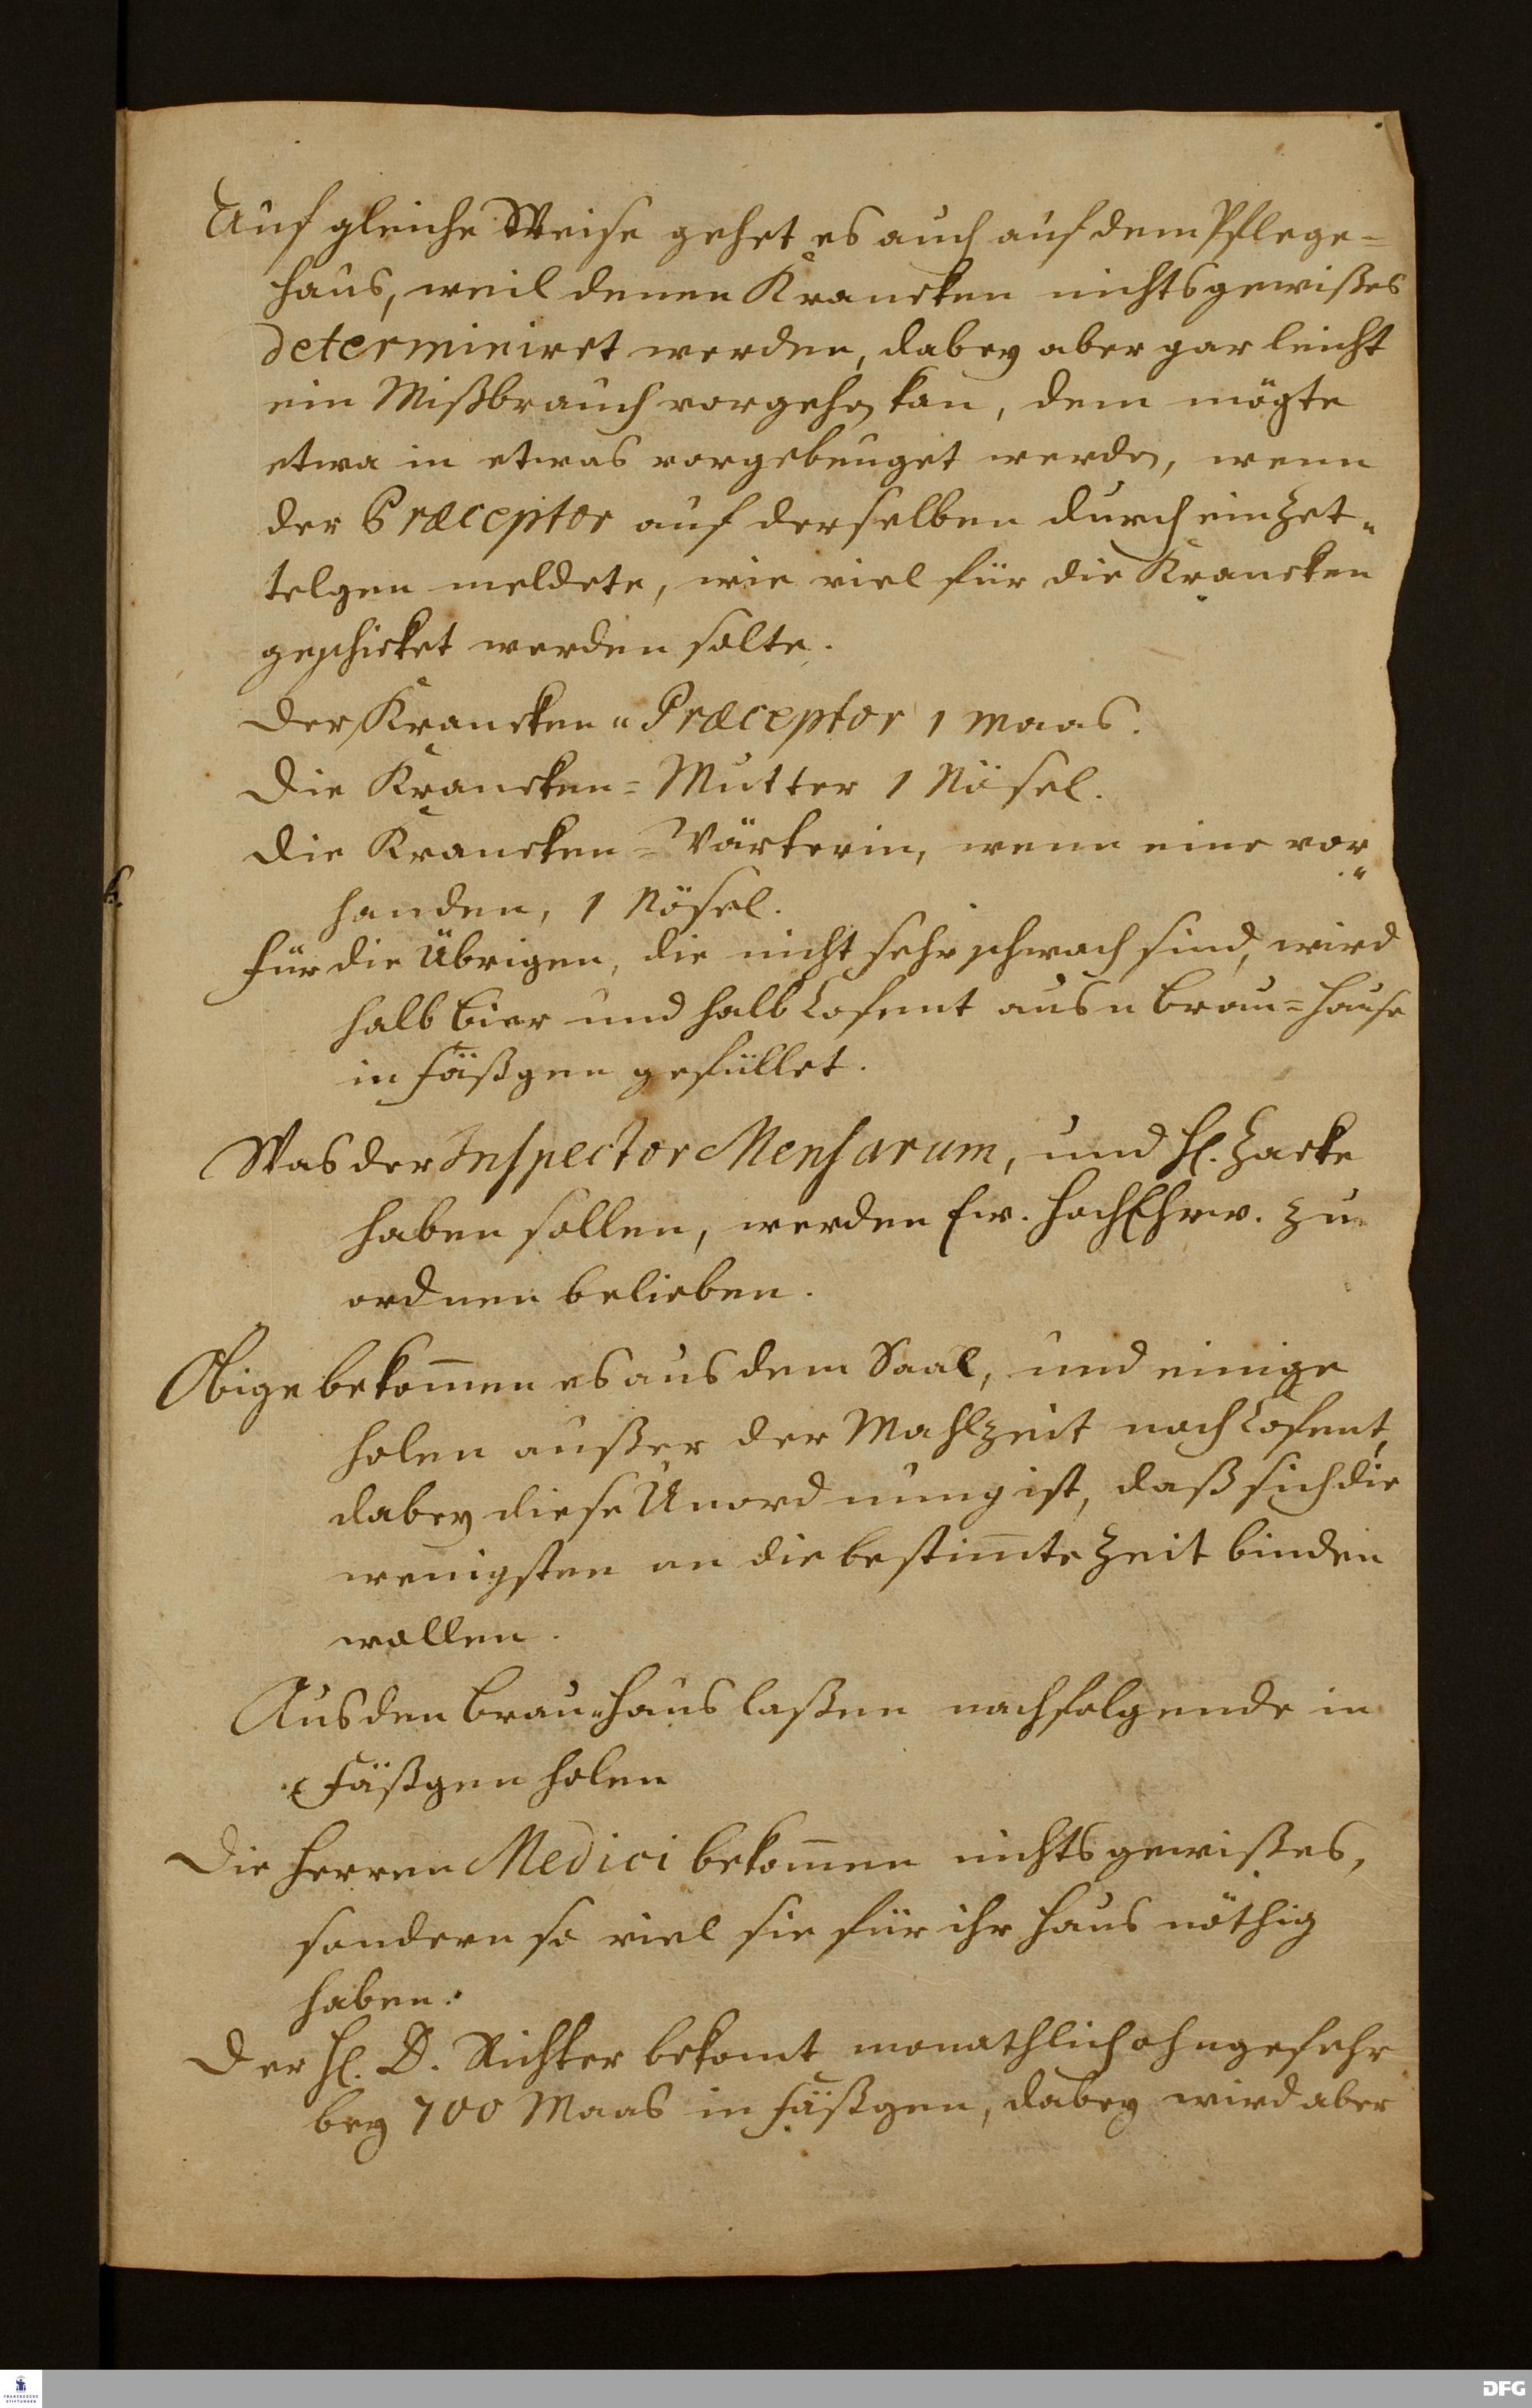 Auf gleiche Weise gehet es auch auf dem Pflege=
haus, weil denen Krancken nichts gewißes
determiniret werden, dabey aber gar leicht
ein Mißbrauch vorgehen kan, dem mögte
etwa in etwas vorgebeuget werden, wenn
der Præceptor auf derselben durch ein Zet„
telgen meldete, wie viel für die Krancken
geschicket werden solte.
Der Krancken„Præceptor 1 Maas.
Die Krancken=Mutter 1 Nösel.
Die Krancken=Wärterin, wenn eine vor„
handen, 1 Nösel.
Für die Übrigen, die nicht sehr schwach sind, wird
halb Bier und halb Cofent aus'n Brau=Hause
in Fäßgen gefüllet.
Was der Inspector Mensarum, und H. Zacke
haben sollen, werden Ew. HochEhrw. zu
ordnen belieben.
Obige bekom̄en es aus dem Saal, und einige
holen außer der Mahlzeit noch Cofent,
dabey diese Unordnung ist, daß sich die
wenigsten an die bestim̄te Zeit binden
wollen.
Aus den Brau=Haus laßen nachfolgende in
Fäßgen holen
Die Herren Medici bekom̄en nichts gewißes,
sondern so viel sie für ihr Haus nöthig
haben.
Der H. D. Richter bekomt monathlich ohngefehr
bey 700 Maas in Fäßgen, dabey wird aber
FRANCKESCHE
STIFTUNGEN
DFG